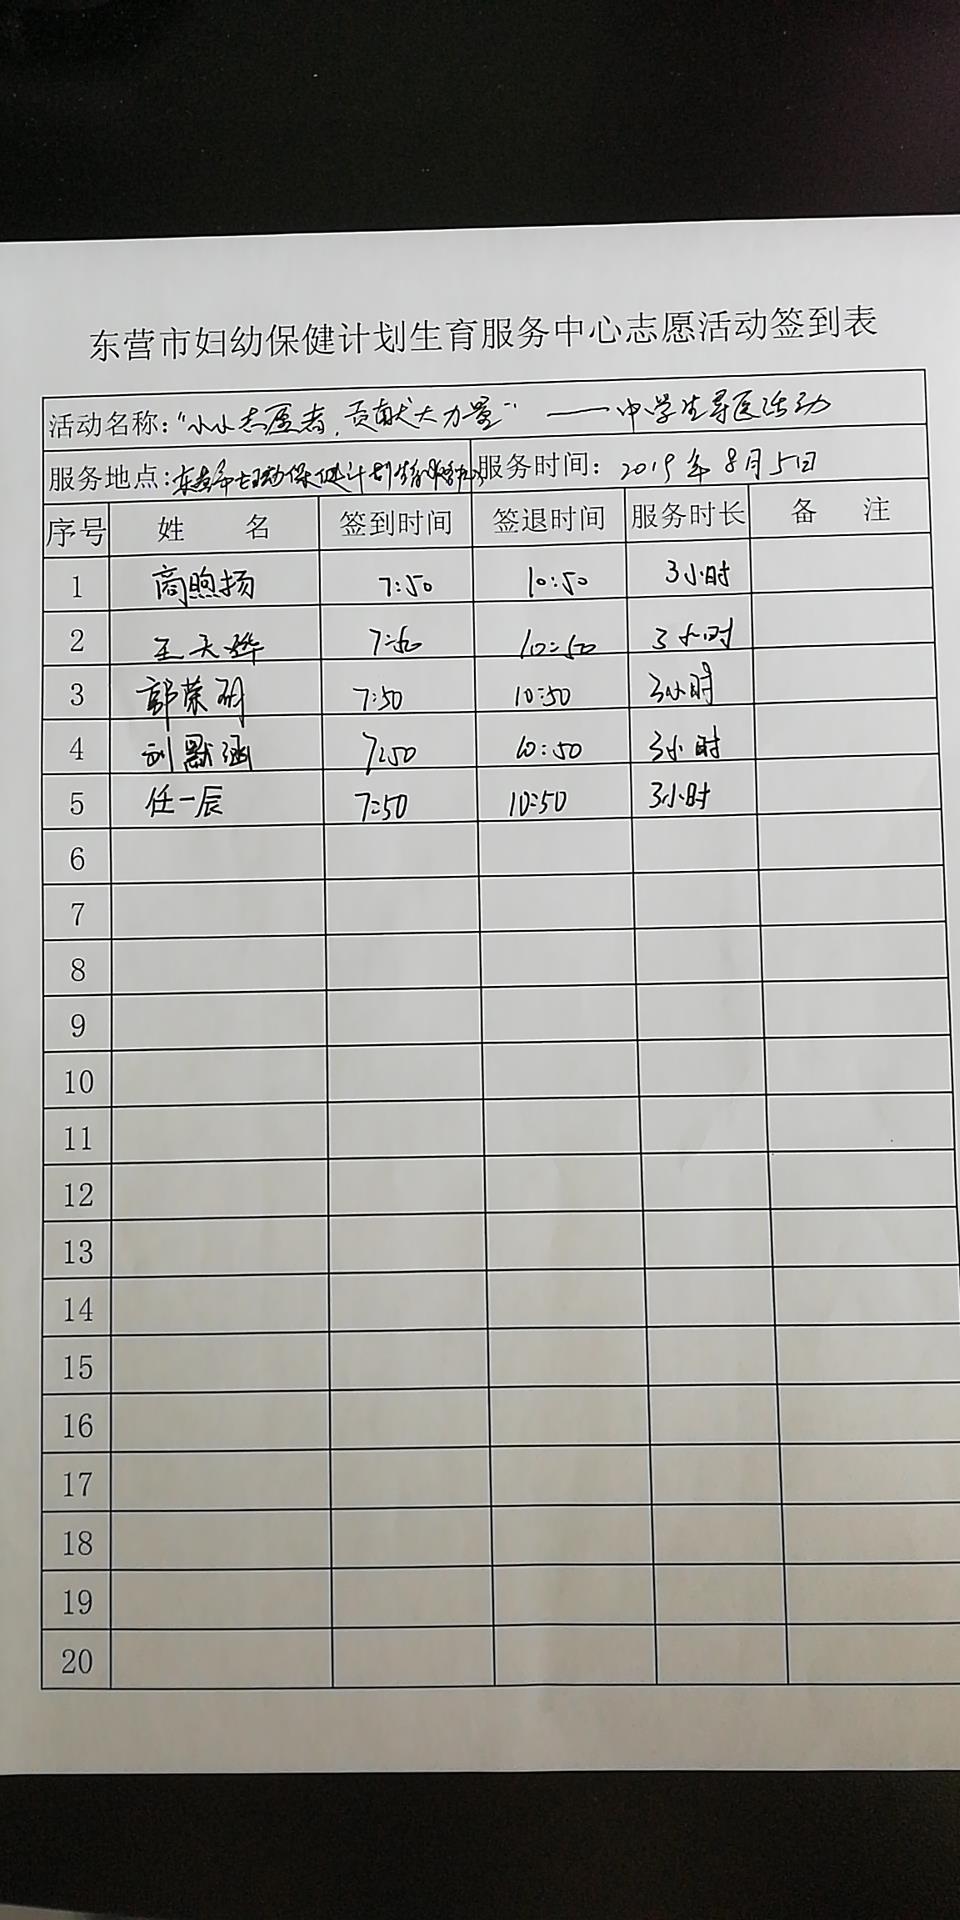 东营市妇幼保健计划生育服务中心志愿活动签到表
活动名称：“小小志愿者，贡献大力量”——中学生导医活动
服务地点：东营市妇幼保健计划生育服务中心 服务时间：2019年8月5日
序号 姓 名 签到时间 签退时间 服务时长 备 注
1 商煦扬 7:50 10:50 3小时
2 王天骅 7:50 10:50 3小时
3 郭荣 7:50 10:50 3小时
4 刘默涵 7:50 10:50 3小时
5 任一辰 7:50 10:50 3小时
6
7
8
9
10
11
12
13
14
15
16
17
18
19
20